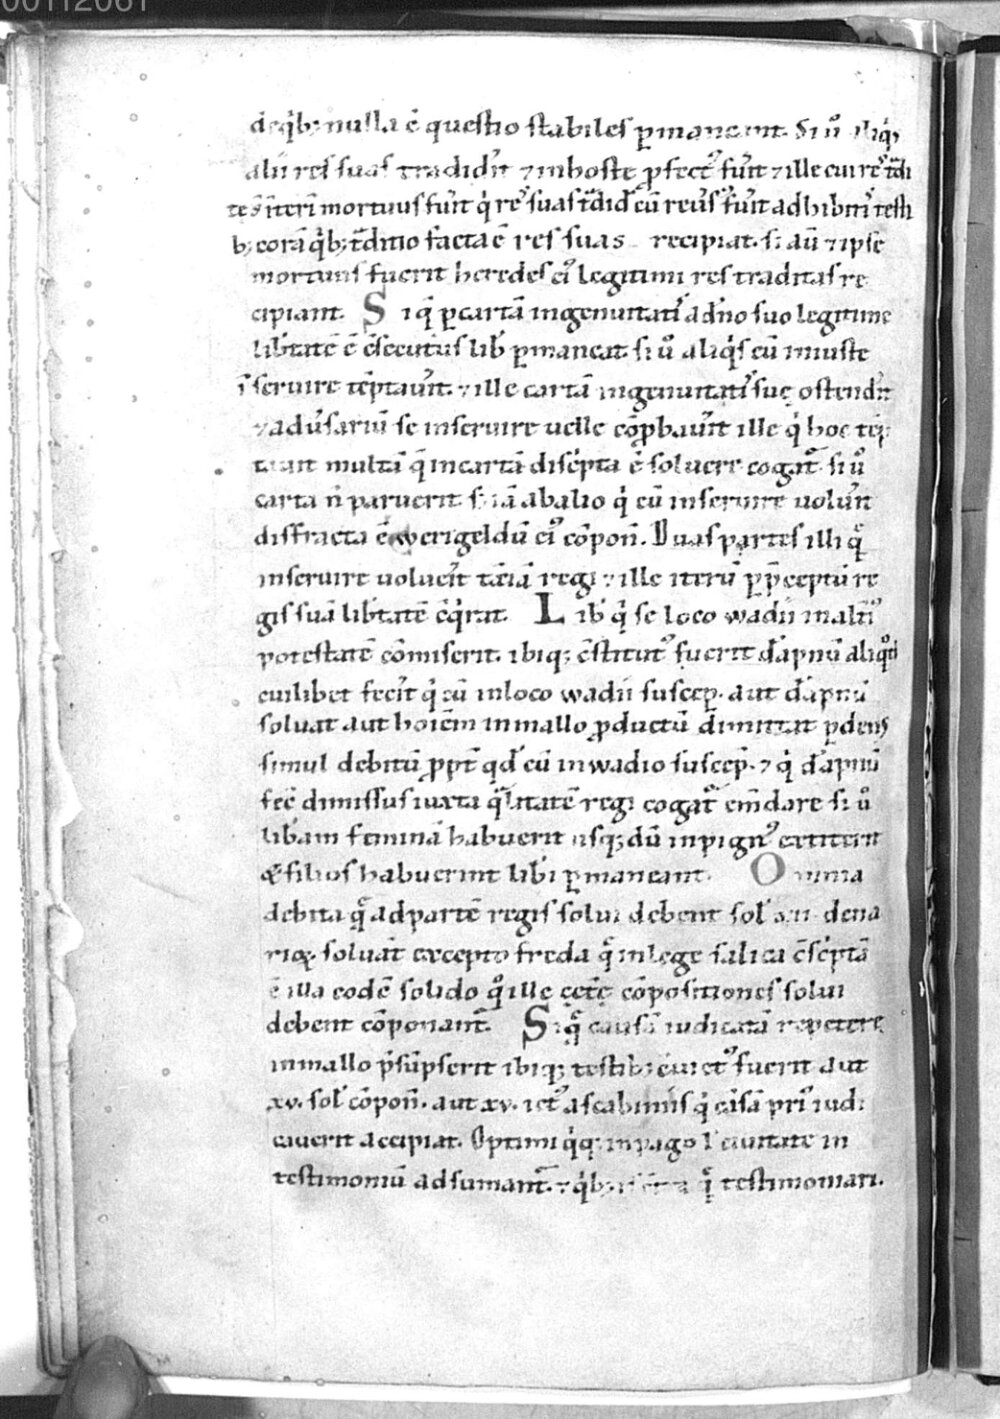 00112061
deq̇b; nulla ē questio stabiles ꝑmaneant. Si ů aliq́s
alii res suas tradidit̄ ⁊ in hoste ꝓfect᷒ fuit̄ ⁊ ille cui res t̄di
b; corā q́b; t̄ditio facta ē res suas recipiat. si aū ⁊ ipse
mortuus fuerit heredes ei᷒ legitimi res traditas re
cipiant. Si q́ ꝑ cartā ingenuitatis a dn̄o suo legitime
lib̄tatē ē c̄secutus lib̄ ꝑmaneat. si ů aliq́s eū iniuste
īseruire tēptauit̄. ⁊ ille cartā ingenuitatis suę ostendit̄
⁊ adūsariū se inseruire uelle cōp̱bauit̄ ille q́ hoc tēp
tauit multā q̄ in carta disc̄pta ē soluere cogat᷒. si ů
carta n̄ paruerit s; iā ab alio q́ eū inseruire uoluit̄
disfracta ē werigeldū ei᷒ cōpon̄. Duas partes illi q̄
inseruire uoluerit t̄ciā regi ⁊ ille iterū ꝑ p̄ceptū re
gis suā lib̄tatē c̄q́rat. Lib̄ q́ se loco wadii in alt̄i᷒
potestatē cōmiserit. ibiq; c̄stitut᷒ fuerit dāpnū aliqd̄
cuilibet fecit̄ q́ eū in loco wadii suscep̄. aut dāpnū
soluat aut hoiēm in mallo ꝓductū dimittat ꝑdens
simul debitū ꝓpt̄ qd̄ eū in wadio suscep̄. ⁊ q́ dāpnū
fec̄ dimissus iuxta q̄litatē regi cogat᷒ em̄dare si ů
lib̄am feminā habuerit usq; dū in pign᷒ extiterit
⁊ filios habuerint lib̄i ꝑmaneant. Omnia
debita q̄ ad partē regis solui debent sol̄ xii dena
rioꝝ soluat̄ excepto freda q̄ in lege salica c̄sc̄pta
ē illa eodē solido q̊ illę cęt̄ę cōpositiones solui
debent cōponant᷒. Siq̄ causā iudicatā repetere
in mallo p̄sūpserit ibiq; testib; c̄uict᷒ fuerit aut
xv. sol̄ cōpon̄. aut xv. ict᷒ a scabiniis q́ cāsā pri᷒ iudi
cauerit accipiat. Optimi q́q; in pago ł ciuitate in
testimoniū adsumant᷒. ⁊ q́b; q̄ testimoniari.